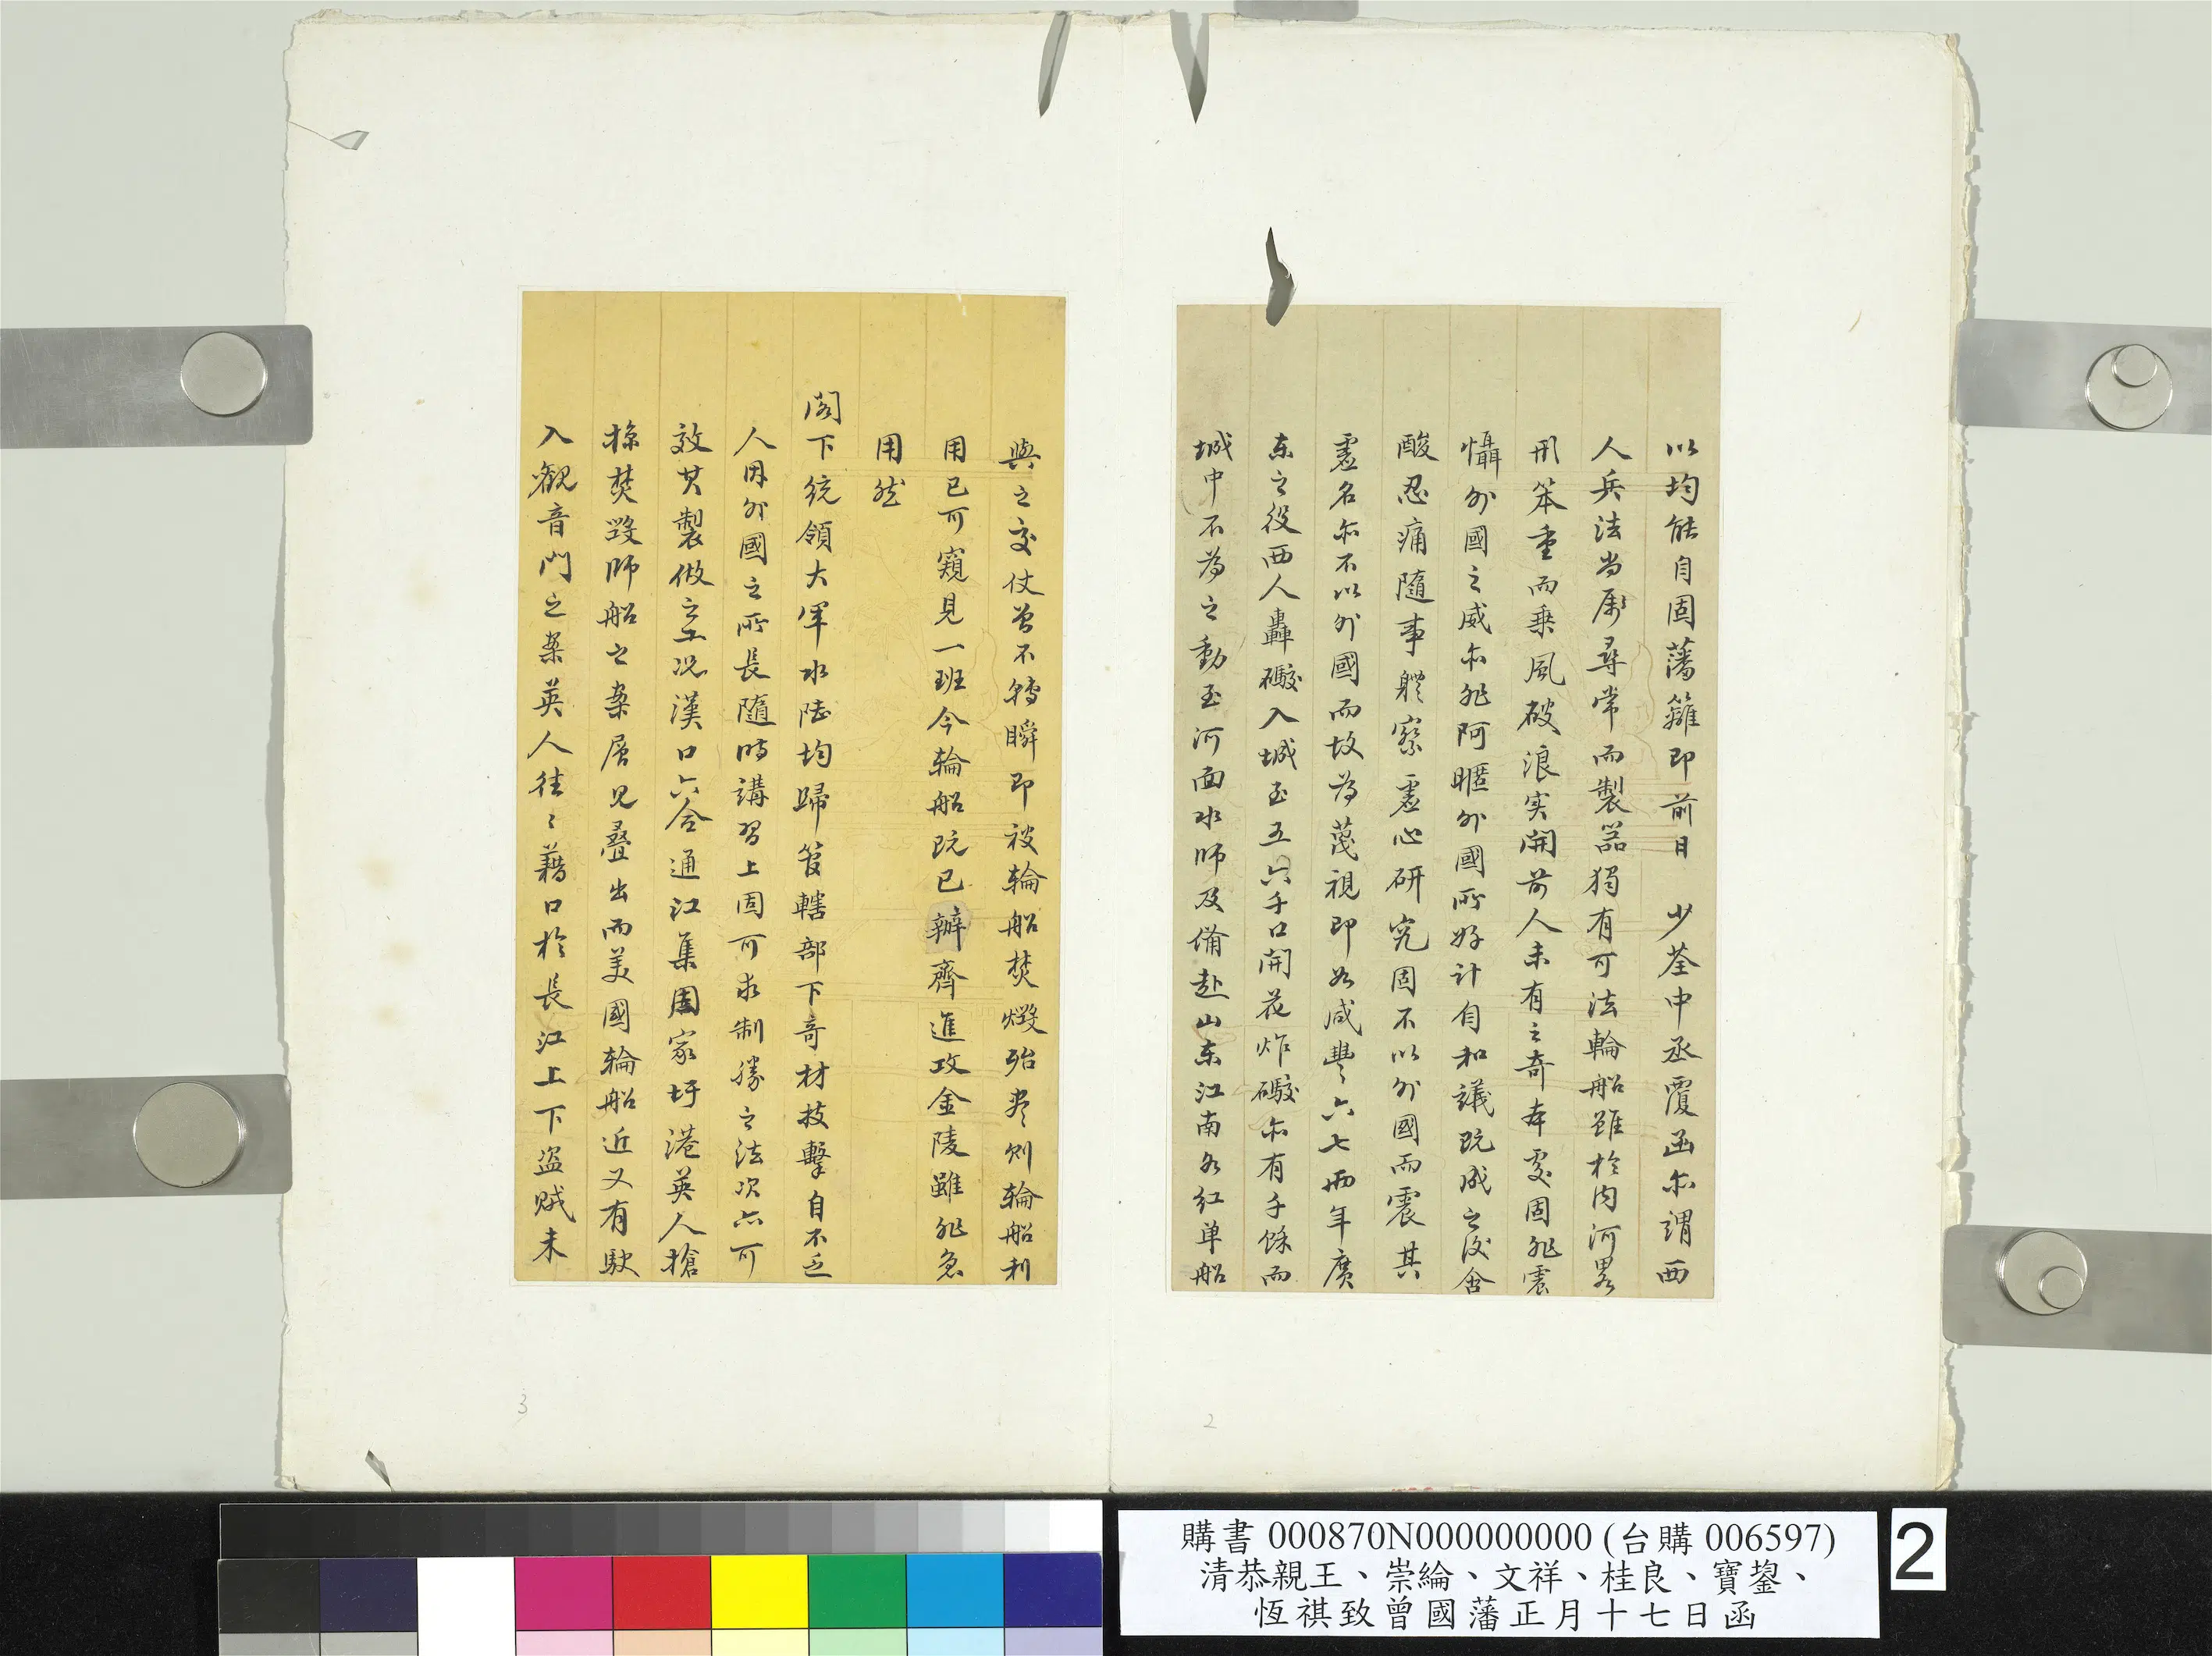 以均能自固藩籬即前日　少荃中丞覆函亦謂西
人兵法尚屬尋常而製器獨有可法輪船雖於內河畧
形笨重而乗風破浪实開前人未有之奇本處固非震
懾外國之威亦非阿暱外國所好計自和議既成之後含
酸忍痛隨事體察虛心研究固不以外國而震其
虛名亦不以外國而故為蔑視即如咸豐六七兩年廣
东之役西人轟礮入城至五六千口開花炸礮亦有千餘而
城中不為之動至河面水師及備赴山东江南各红单船
與之交仗曾不轉瞬即被輪船焚燬殆盡则輪船利
用已可窺見一班今輪船既已辦齊進攻金陵雖非急
用然
閣下统領大軍水陸均歸管轄部下奇材技擊自不乏
人因外國之所長隨時講習上固可求制勝之法次亦可
效其製做之工况漢口六合通江集周家圩港英人搶
掠焚毀師船之案層見疊出而美國輪船近又有駛
入觀音門之案英人往々藉口於長江上下盜賊未
3
2
購書 000870N000000000 (台購 006597)
清恭親王、崇綸、文祥、桂良、寶鋆、
恆祺致曾國藩正月十七日函
2